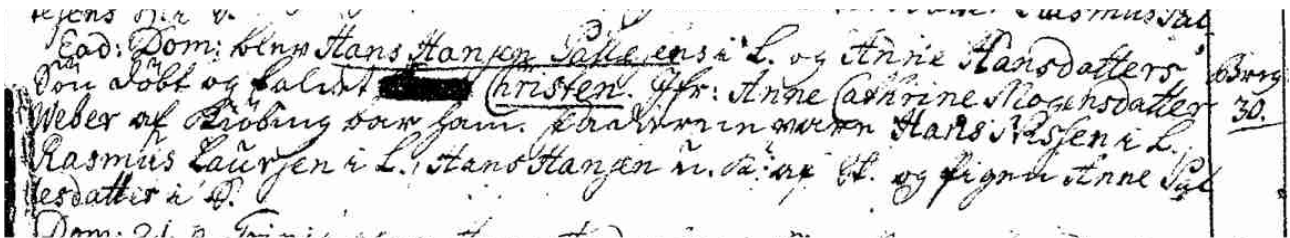 Ead: Dom: blev Hans Hansen Pallesens i L. og Anne Hansdatters
Søn døbt og kaldet Christen. Jfr: Anne Cathrine Mogensdatter
Weber af Kiöbing bar ham. Fadderne vare Hans Nissen i L.
Rasmus Laursen i L., Hans Hansen u. K: af St. og pigen Anne Pal
lesdatter i
Dom: 21. p. Trinit
30.